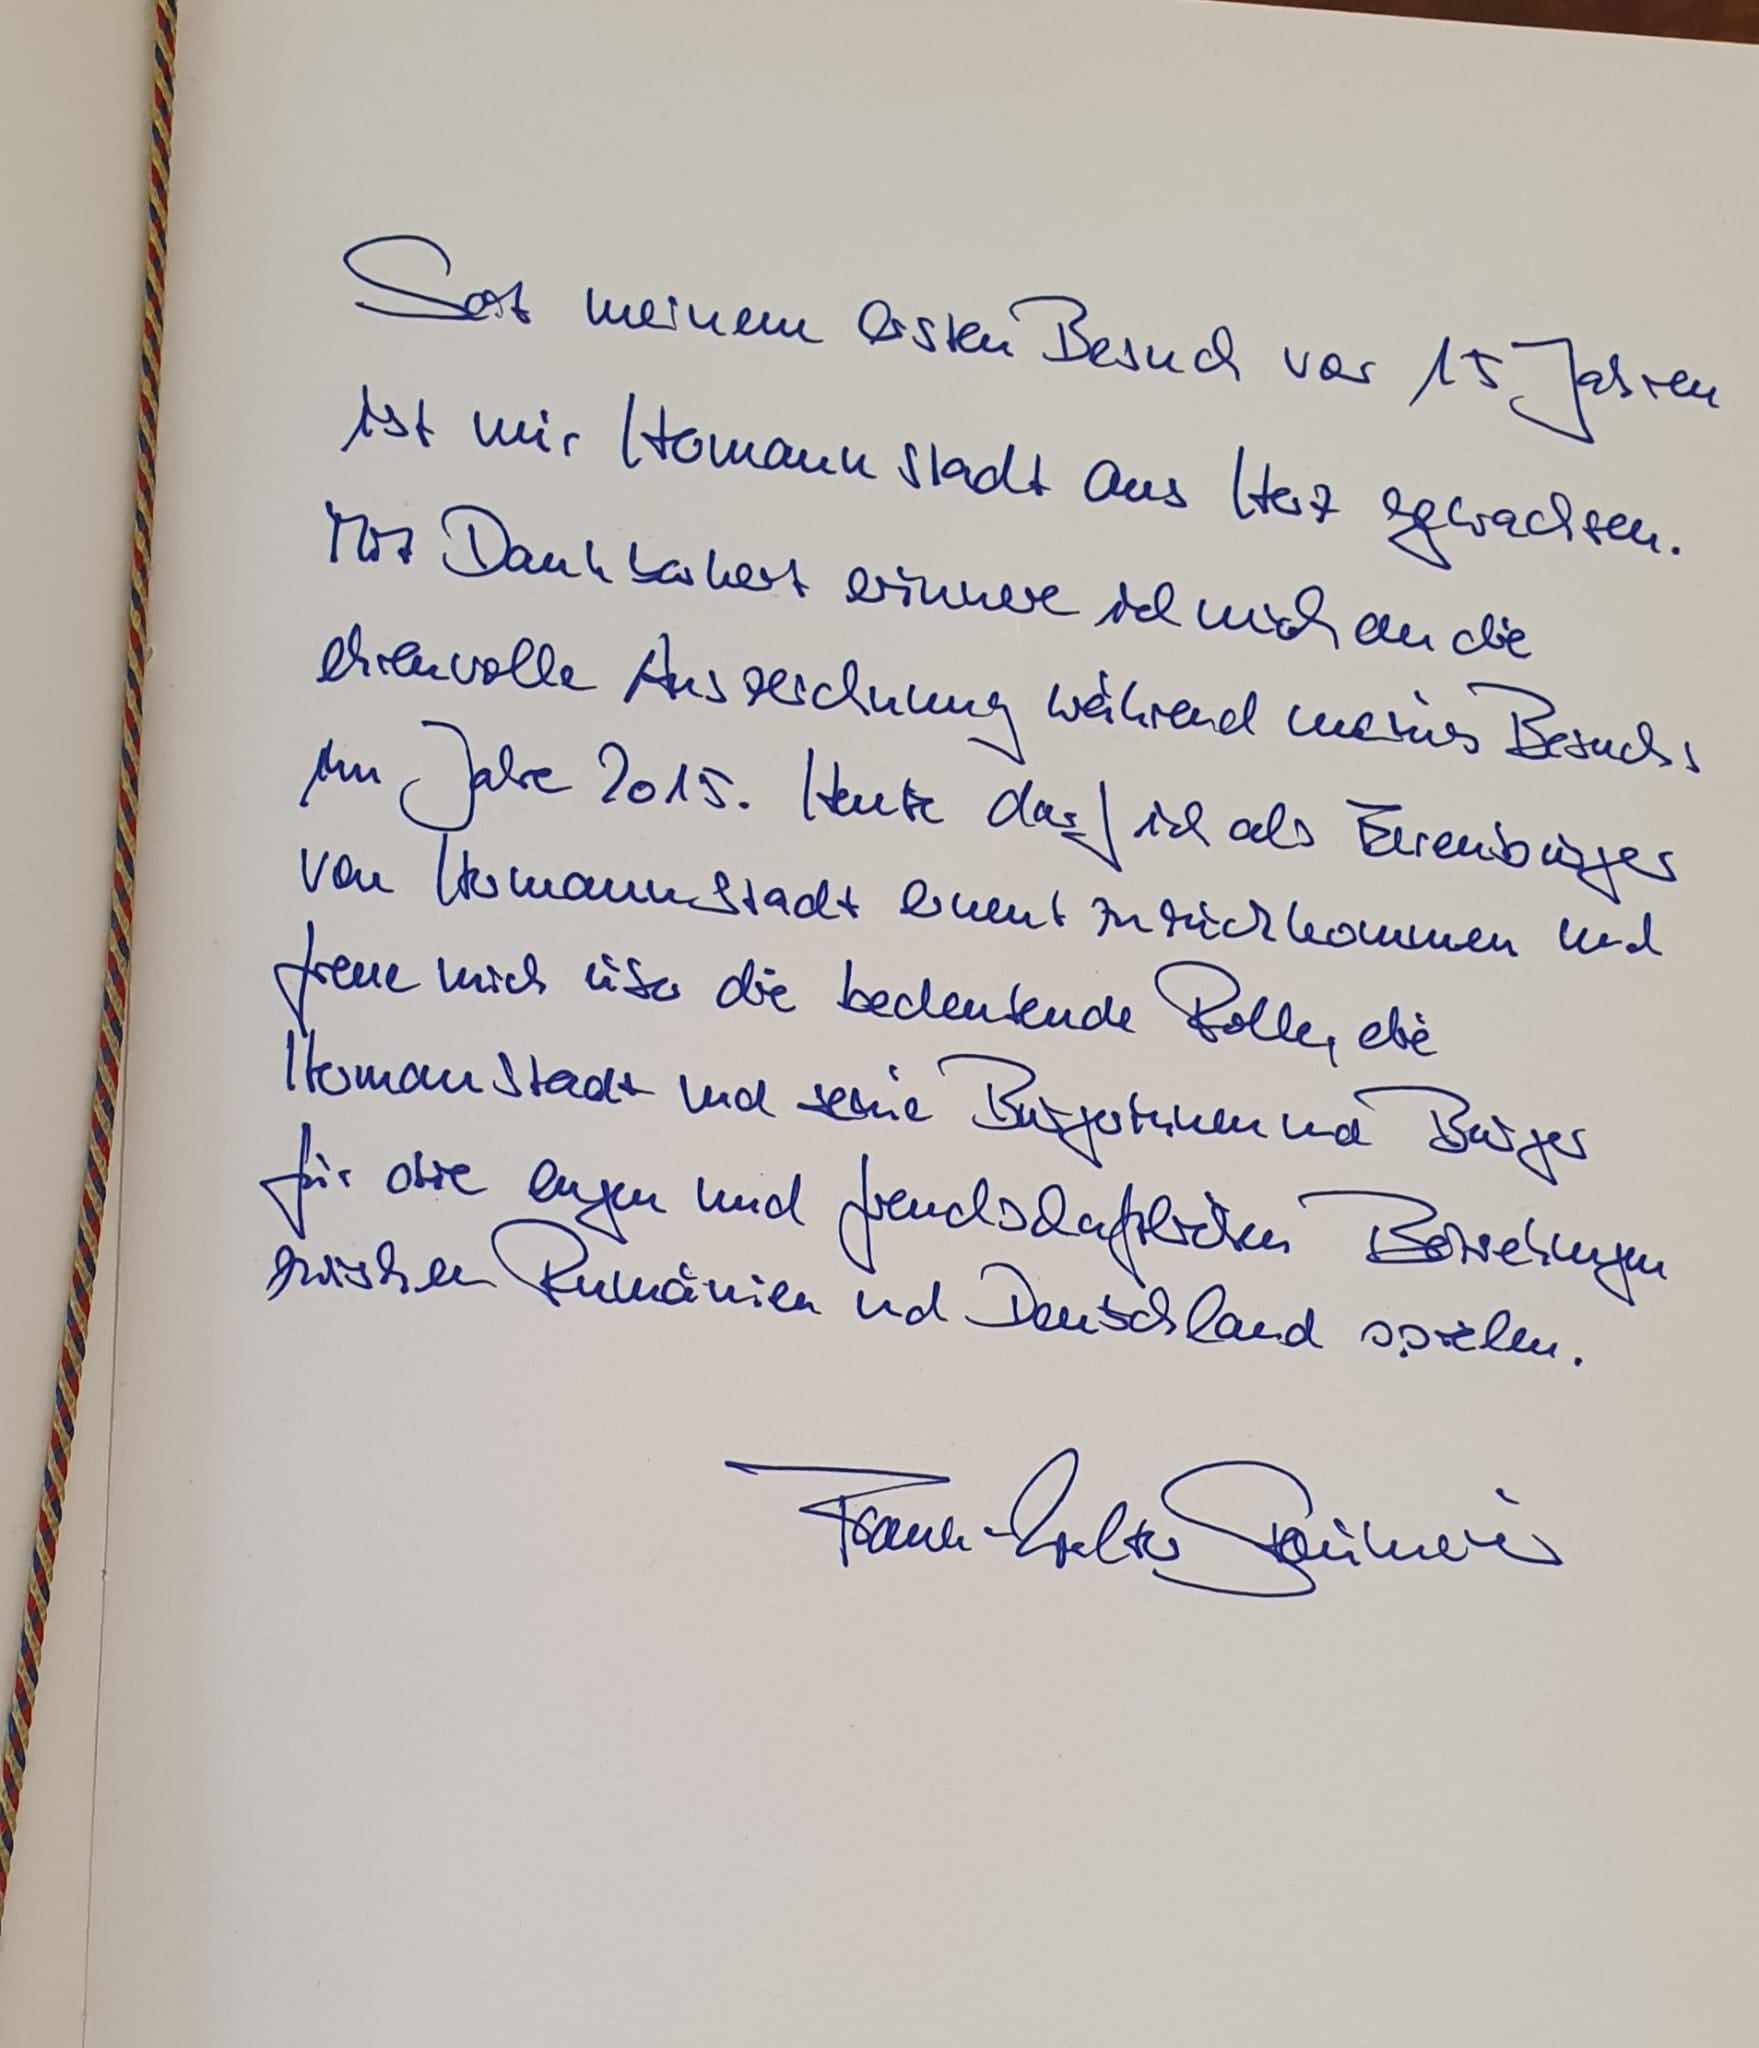 Seit meinem ersten Besuch vor 15 Jahren
ist mir Hermannstadt ans Herz gewachsen.
Mit Dankbarkeit erinnere ich mich an die
ehrenvolle Auszeichnung während meines Besuchs
im Jahre 2015. Heute darf ich als Ehrenbürger
von Hermannstadt erneut zurückkommen und
freue mich über die bedeutende Rolle, die
Hermannstadt und seine Bürgerinnen und Bürger
für die engen und freundschaftlichen Beziehungen
zwischen Rumänien und Deutschland spielen.
Frank-Walter Steinmeier